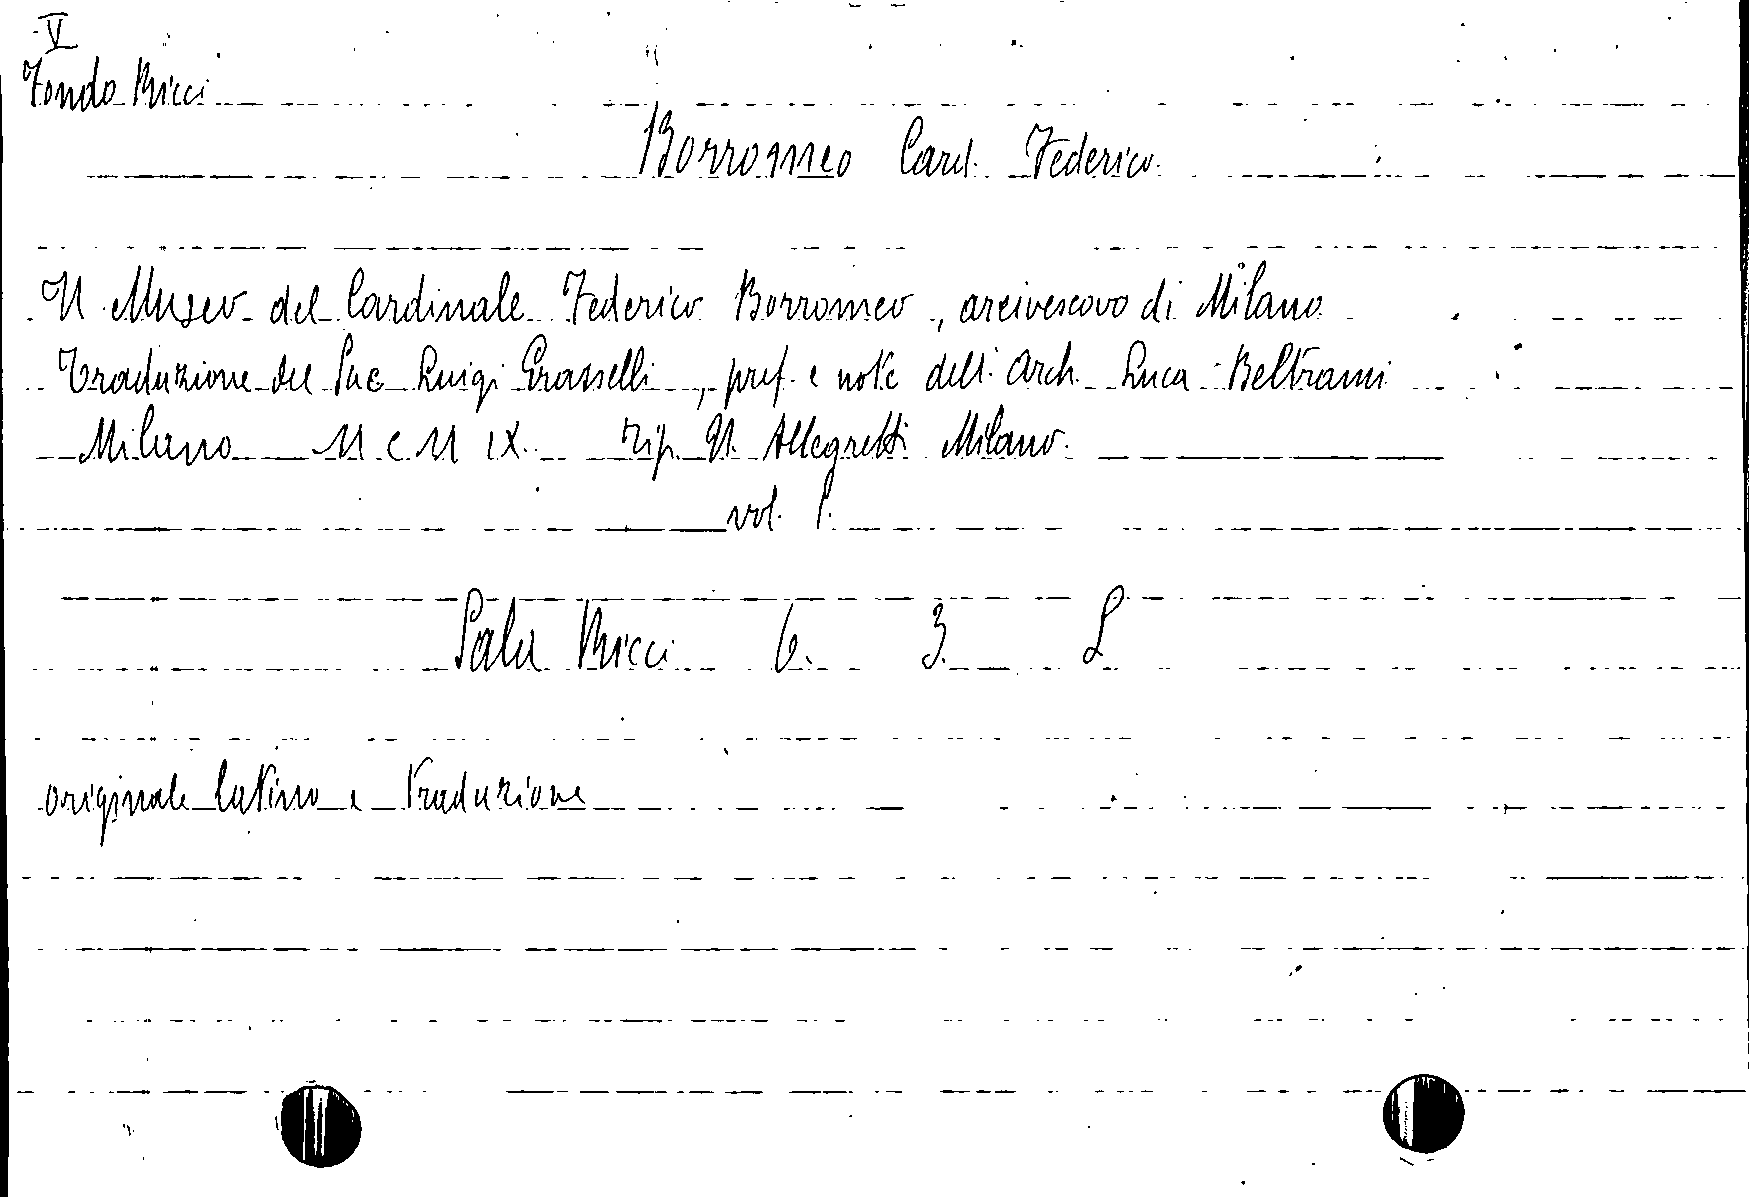 V
Fondo Ricci
Borromeo Card. Federico
Il Museo del Cardinale Federico Borromeo, arcivescovo di Milano
Traduzione del Sac Luigi Grasselli, pref. e note dell'Arch. Luca Beltrami
Milano MCMIX. Tip. U. Allegretti Milano.
vol. 1.
Sala Ricci 6. 3. L
originale latino e traduzione